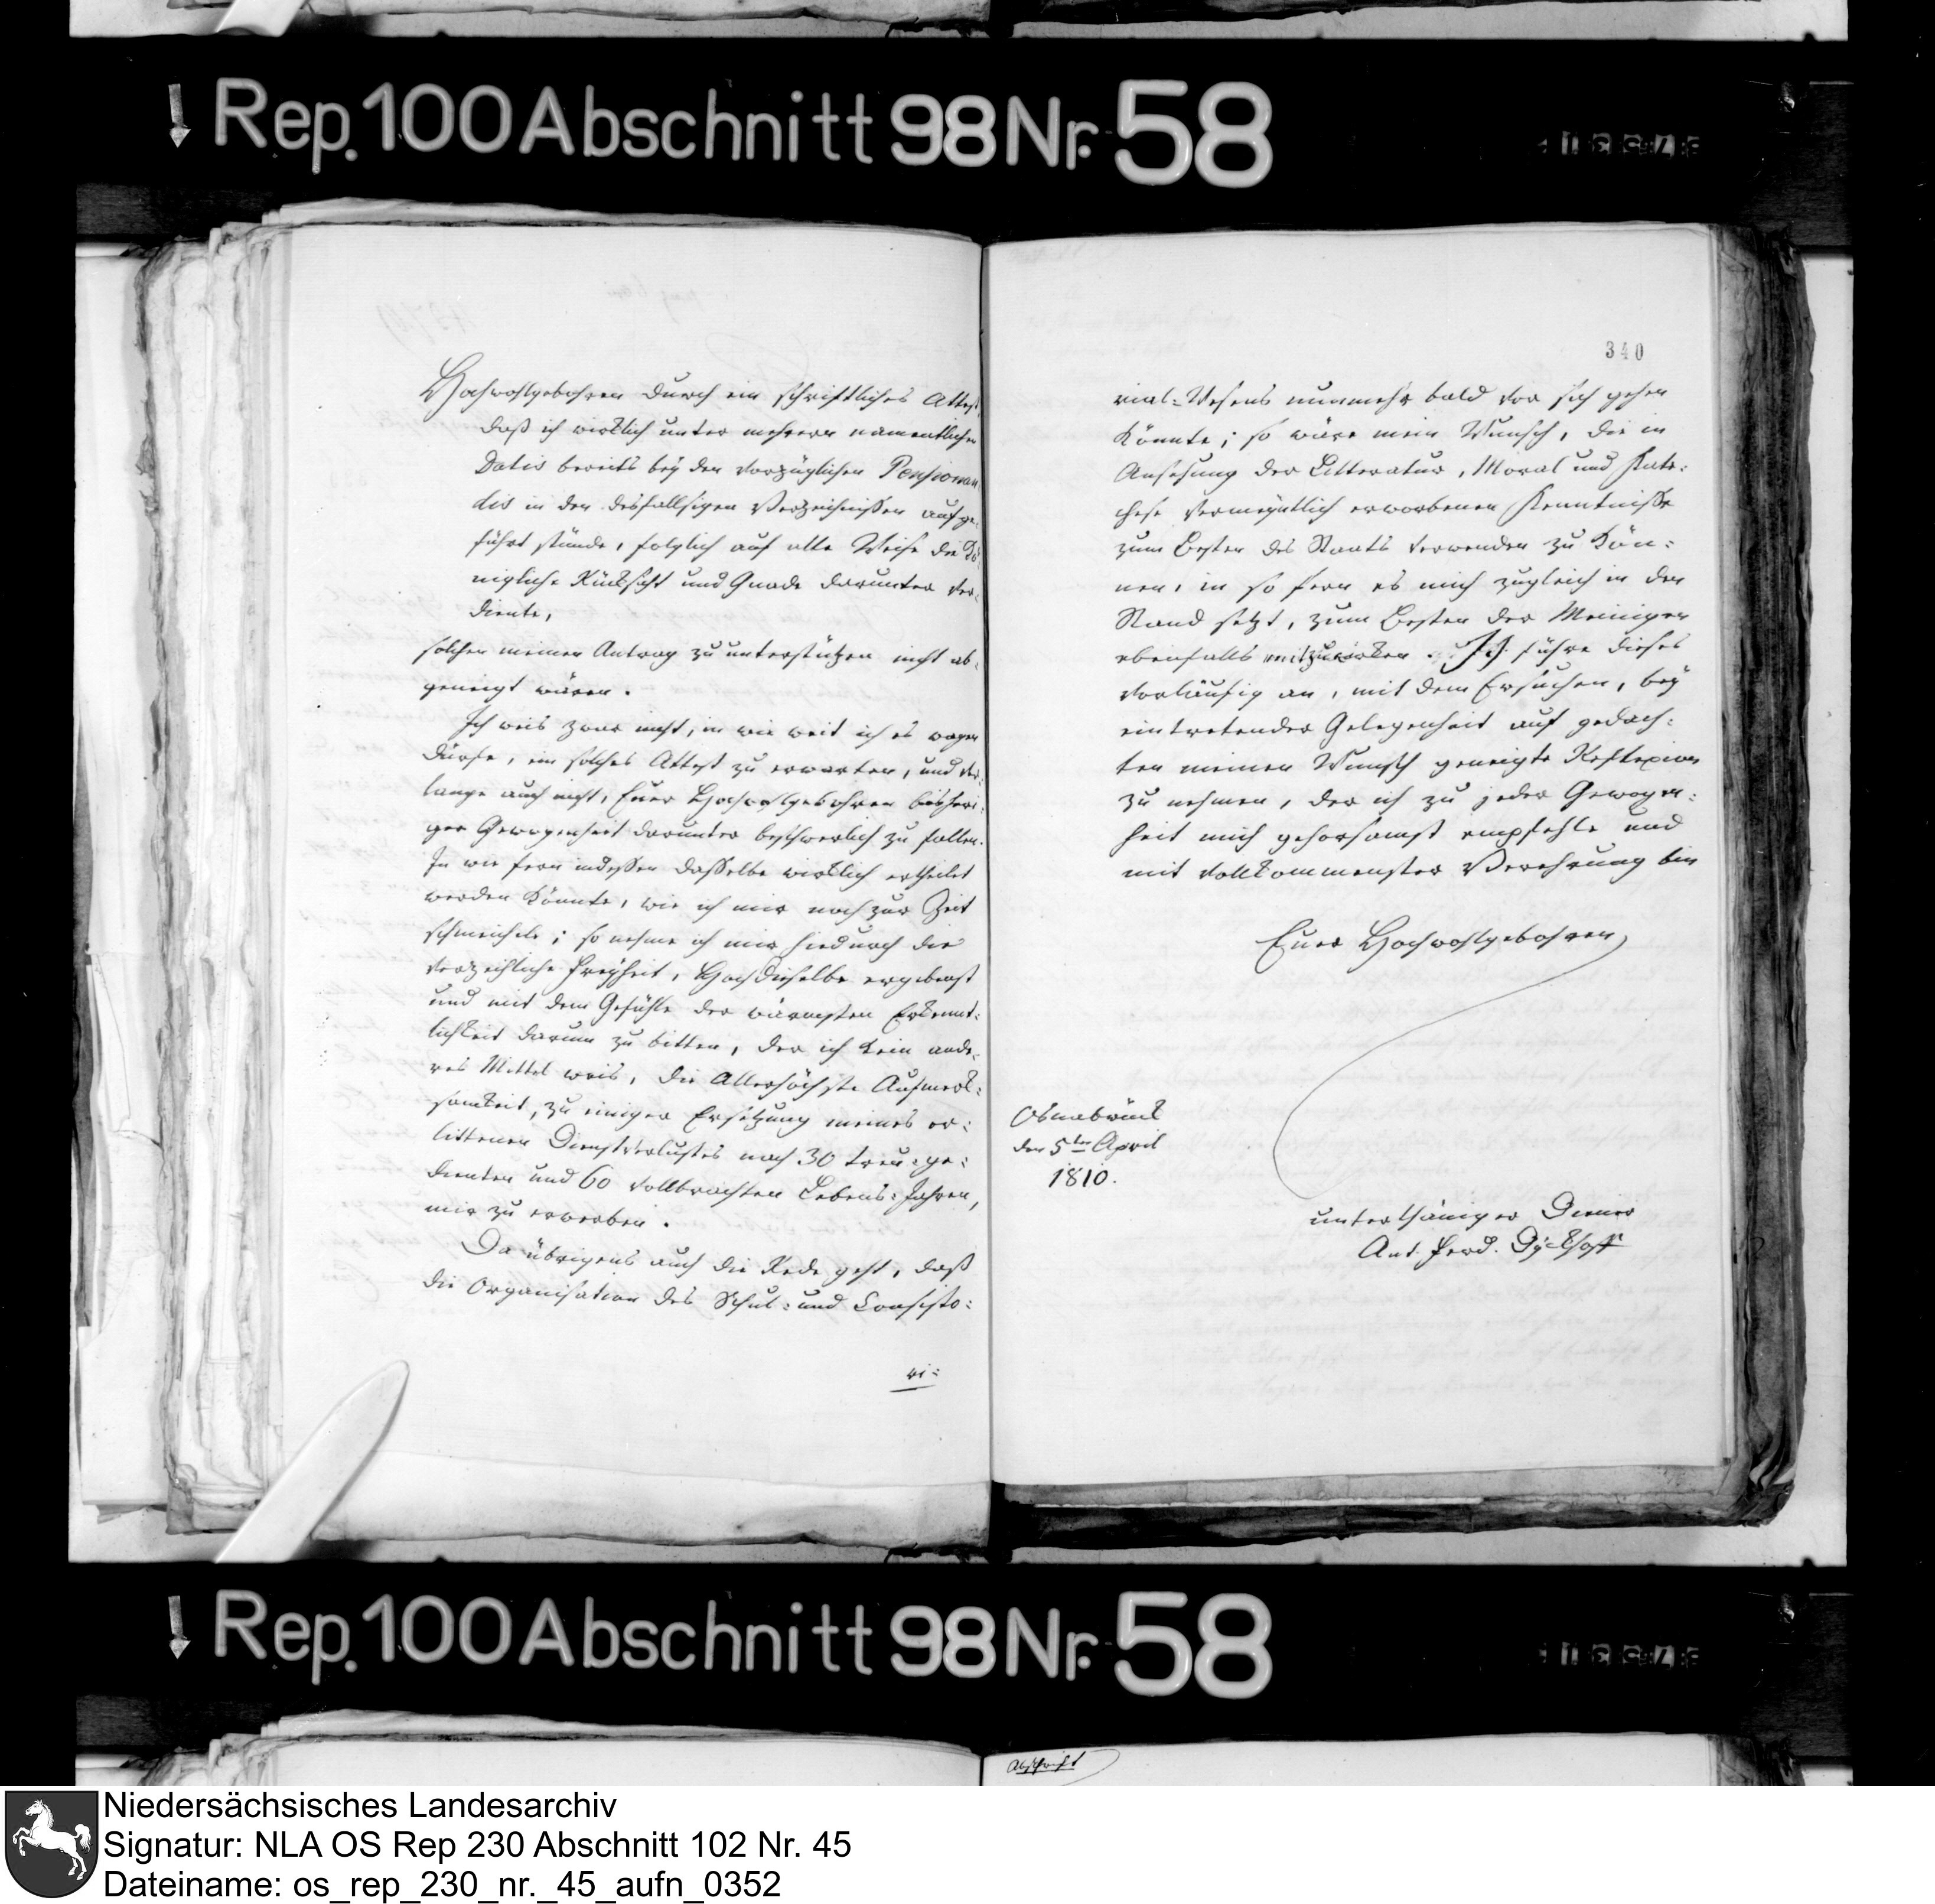 Rep. 100 Abschnitt 98 Nr. 58
Hochwohlgebohren durch ein schriftliches Attest,
daß ich wirklich unter mehrern namentlichen
Datis bereits bey den vorzüglichen Pensionan
dis in den desfallsigen Verzeichnißen aufge-
führt stünde, folglich auf alle Weise die Kö-
nigliche Rücksicht und Gnade darunter ver-
diente,
solchen meinen Antrag zu unterstützen nicht ab-
geneigt wären.
Ich weis zwar nicht, in wie weit ich es wagen
dürfe, ein solches Attest zu erwarten, und ver-
lange auch nicht, Euer Hochwohlgebohren bisheri-
ger Gewogenheit darunter beschwerlich zu fallen.
In wie fern indessen dasselbe wirklich ertheilet
werden könnte, wie ich mir noch zur Zeit
schmeichele; so nehme ich mir hiedurch die
verzeihliche Freyheit, Hochdieselbe ergebenst
und mit dem Gefühle der wärmsten Erkennt-
lichkeit darum zu bitten, der ich kein ande-
res Mittel weis, die Allerhöchste Aufmerk-
samkeit, zu einiger Ersetzung meines er-
littenen Dienstverlustes nach 30 treu-ge-
dienten und 60 vollbrachten Lebens-Jahren,
mir zu erwerben.
Da übrigens auch die Rede geht, daß
die Organisation des Schul- und Consisto-
ri-
340
rial-Wesens nunmehr bald vor sich gehen
könnte; so wäre mein Wunsch, die in
Ansehung der Litteratur, Moral und Kate-
chese vermeyntlich erworbenen Kenntniße
zum Besten des Staats verwenden zu kön-
nen, in so fern es mich zugleich in den
Stand setzt, zum Besten der Meinigen
ebenfalls mitzuwirken. Ich führe dieses
vorläufig an, mit dem Ersuchen, bey
eintretender Gelegenheit auf gedach-
ten meinen Wunsch geneigte Reflexion
zu nehmen, der ich zu jeder Gewogen-
heit mich gehorsamst empfehle und
mit vollkommenster Verehrung bin
Euer Hochwohlgebohren
Osnabrück
den 5ten April
1810.
unterthäniger Diener
Ant. Ferd. Dyckhoff
Rep. 100 Abschnitt 98 Nr. 58
Abschrift
Niedersächsisches Landesarchiv
Signatur: NLA OS Rep 230 Abschnitt 102 Nr. 45
Dateiname: os_rep_230_nr._45_aufn_0352